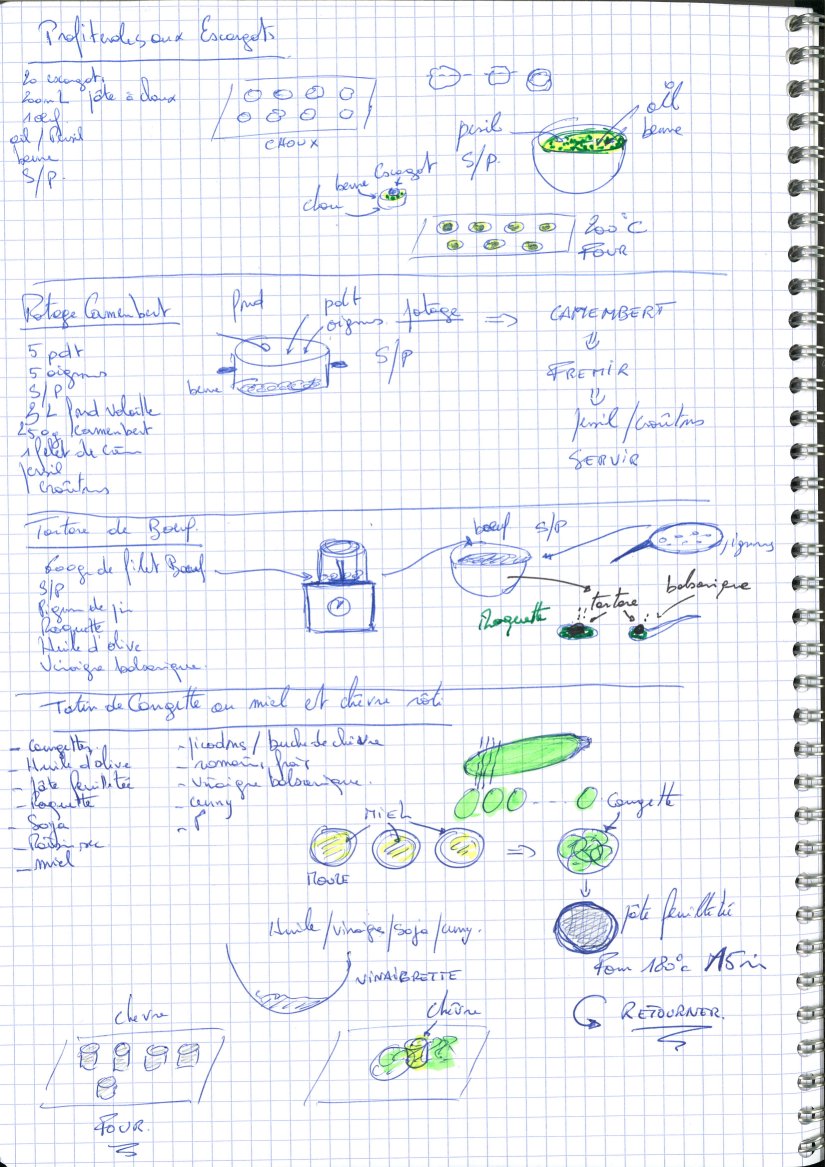 Profiteroles aux Escargots
20 escargots
200mL pâte à choux
1 œuf
ail / Persil
beurre
S/P.
CHOUX
persil
S/P.
ail
beurre
beurre Escargot
chou
200°C
FOUR
Potage Camembert
5 pdt
5 oignons
S/P
L fond volaille
250g camembert
1 filet de crème
persil
croûtons
fond
pdt
oignons
potage
S/P
beurre
⇒ CAMEMBERT
FREMIR
persil / croûtons
SERVIR
Tartare de Bœuf
600g de filet Bœuf
S/P
Pignon de pin
Roquette
Huile d'olive
Vinaigre balsamique.
bœuf S/P
pignons
Roquette
tartare
balsamique
Tatin de Courgette au miel et chèvre rôti
- courgettes
- Huile d'olive
- pâte feuilletée
- Roquette
- Soja
- Raisin sec
- miel
- picodons / buche de chèvre
- romarin frais
- vinaigre balsamique.
- curry
- P
MIEL
MOULE
Courgette
pâte feuilletée
Four 180°c 15 min
RETOURNER.
Huile / vinaigre / soja / curry.
VINAIGRETTE
chevre
FOUR.
chèvre